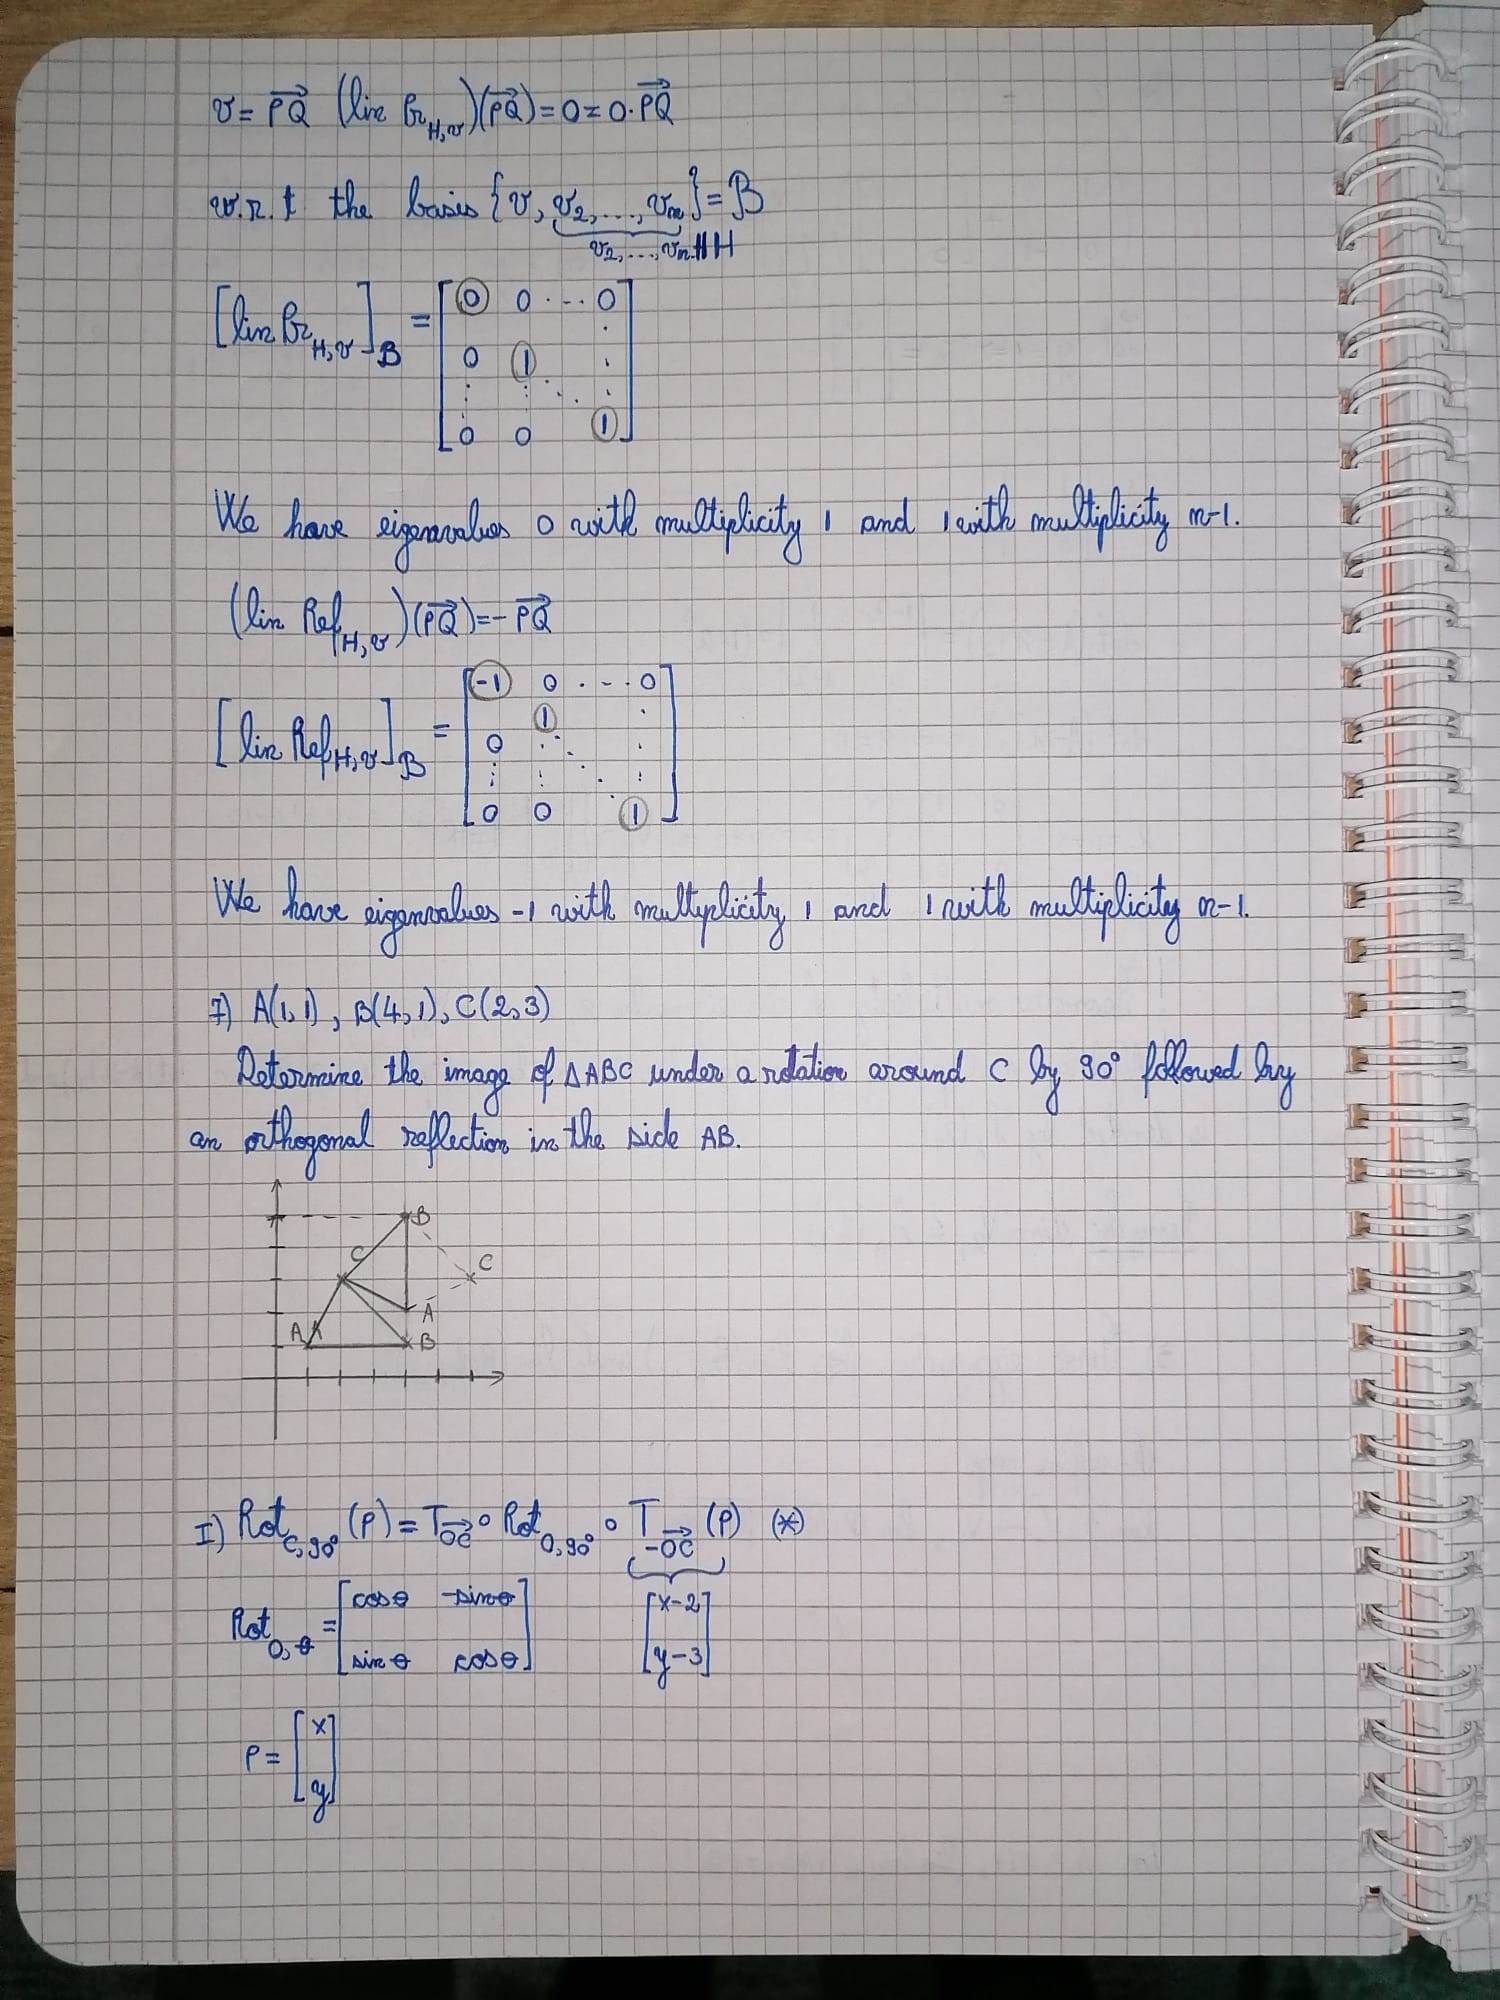 v = \overrightarrow{PQ} (lin Pr_{H,v})(\overrightarrow{PQ}) = 0 = 0·\overrightarrow{PQ}
w.r.t the basis {v, v_2, ..., v_n} = B
v_2, ..., v_n ∥ H
[lin Pr_{H,v}]_B = [0 0 ... 0
0 1 ⋮
⋮ ⋮ ⋱ ⋮
0 0 1]
We have eigenvalues 0 with multiplicity 1 and 1 with multiplicity n-1.
(lin Ref_{H,v})(\overrightarrow{PQ}) = -\overrightarrow{PQ}
[lin Ref_{H,v}]_B = [-1 0 ... 0
1 ⋮
0 ⋱ ⋮
⋮ ⋮ ⋱ ⋮
0 0 1]
We have eigenvalues -1 with multiplicity 1 and 1 with multiplicity n-1.
7) A(1,1), B(4,1), C(2,3)
Determine the image of ΔABC under a rotation around C by 90° followed by
an orthogonal reflection in the side AB.
B
C C
A
A B
I) Rot_{C,90°}(P) = T_{\overrightarrow{OC}} ∘ Rot_{O,90°} ∘ T_{-\overrightarrow{OC}} (P) (*)
Rot_{O,θ} = [cosθ -sinθ [x-2
sinθ cosθ] y-3]
P = [x
y]